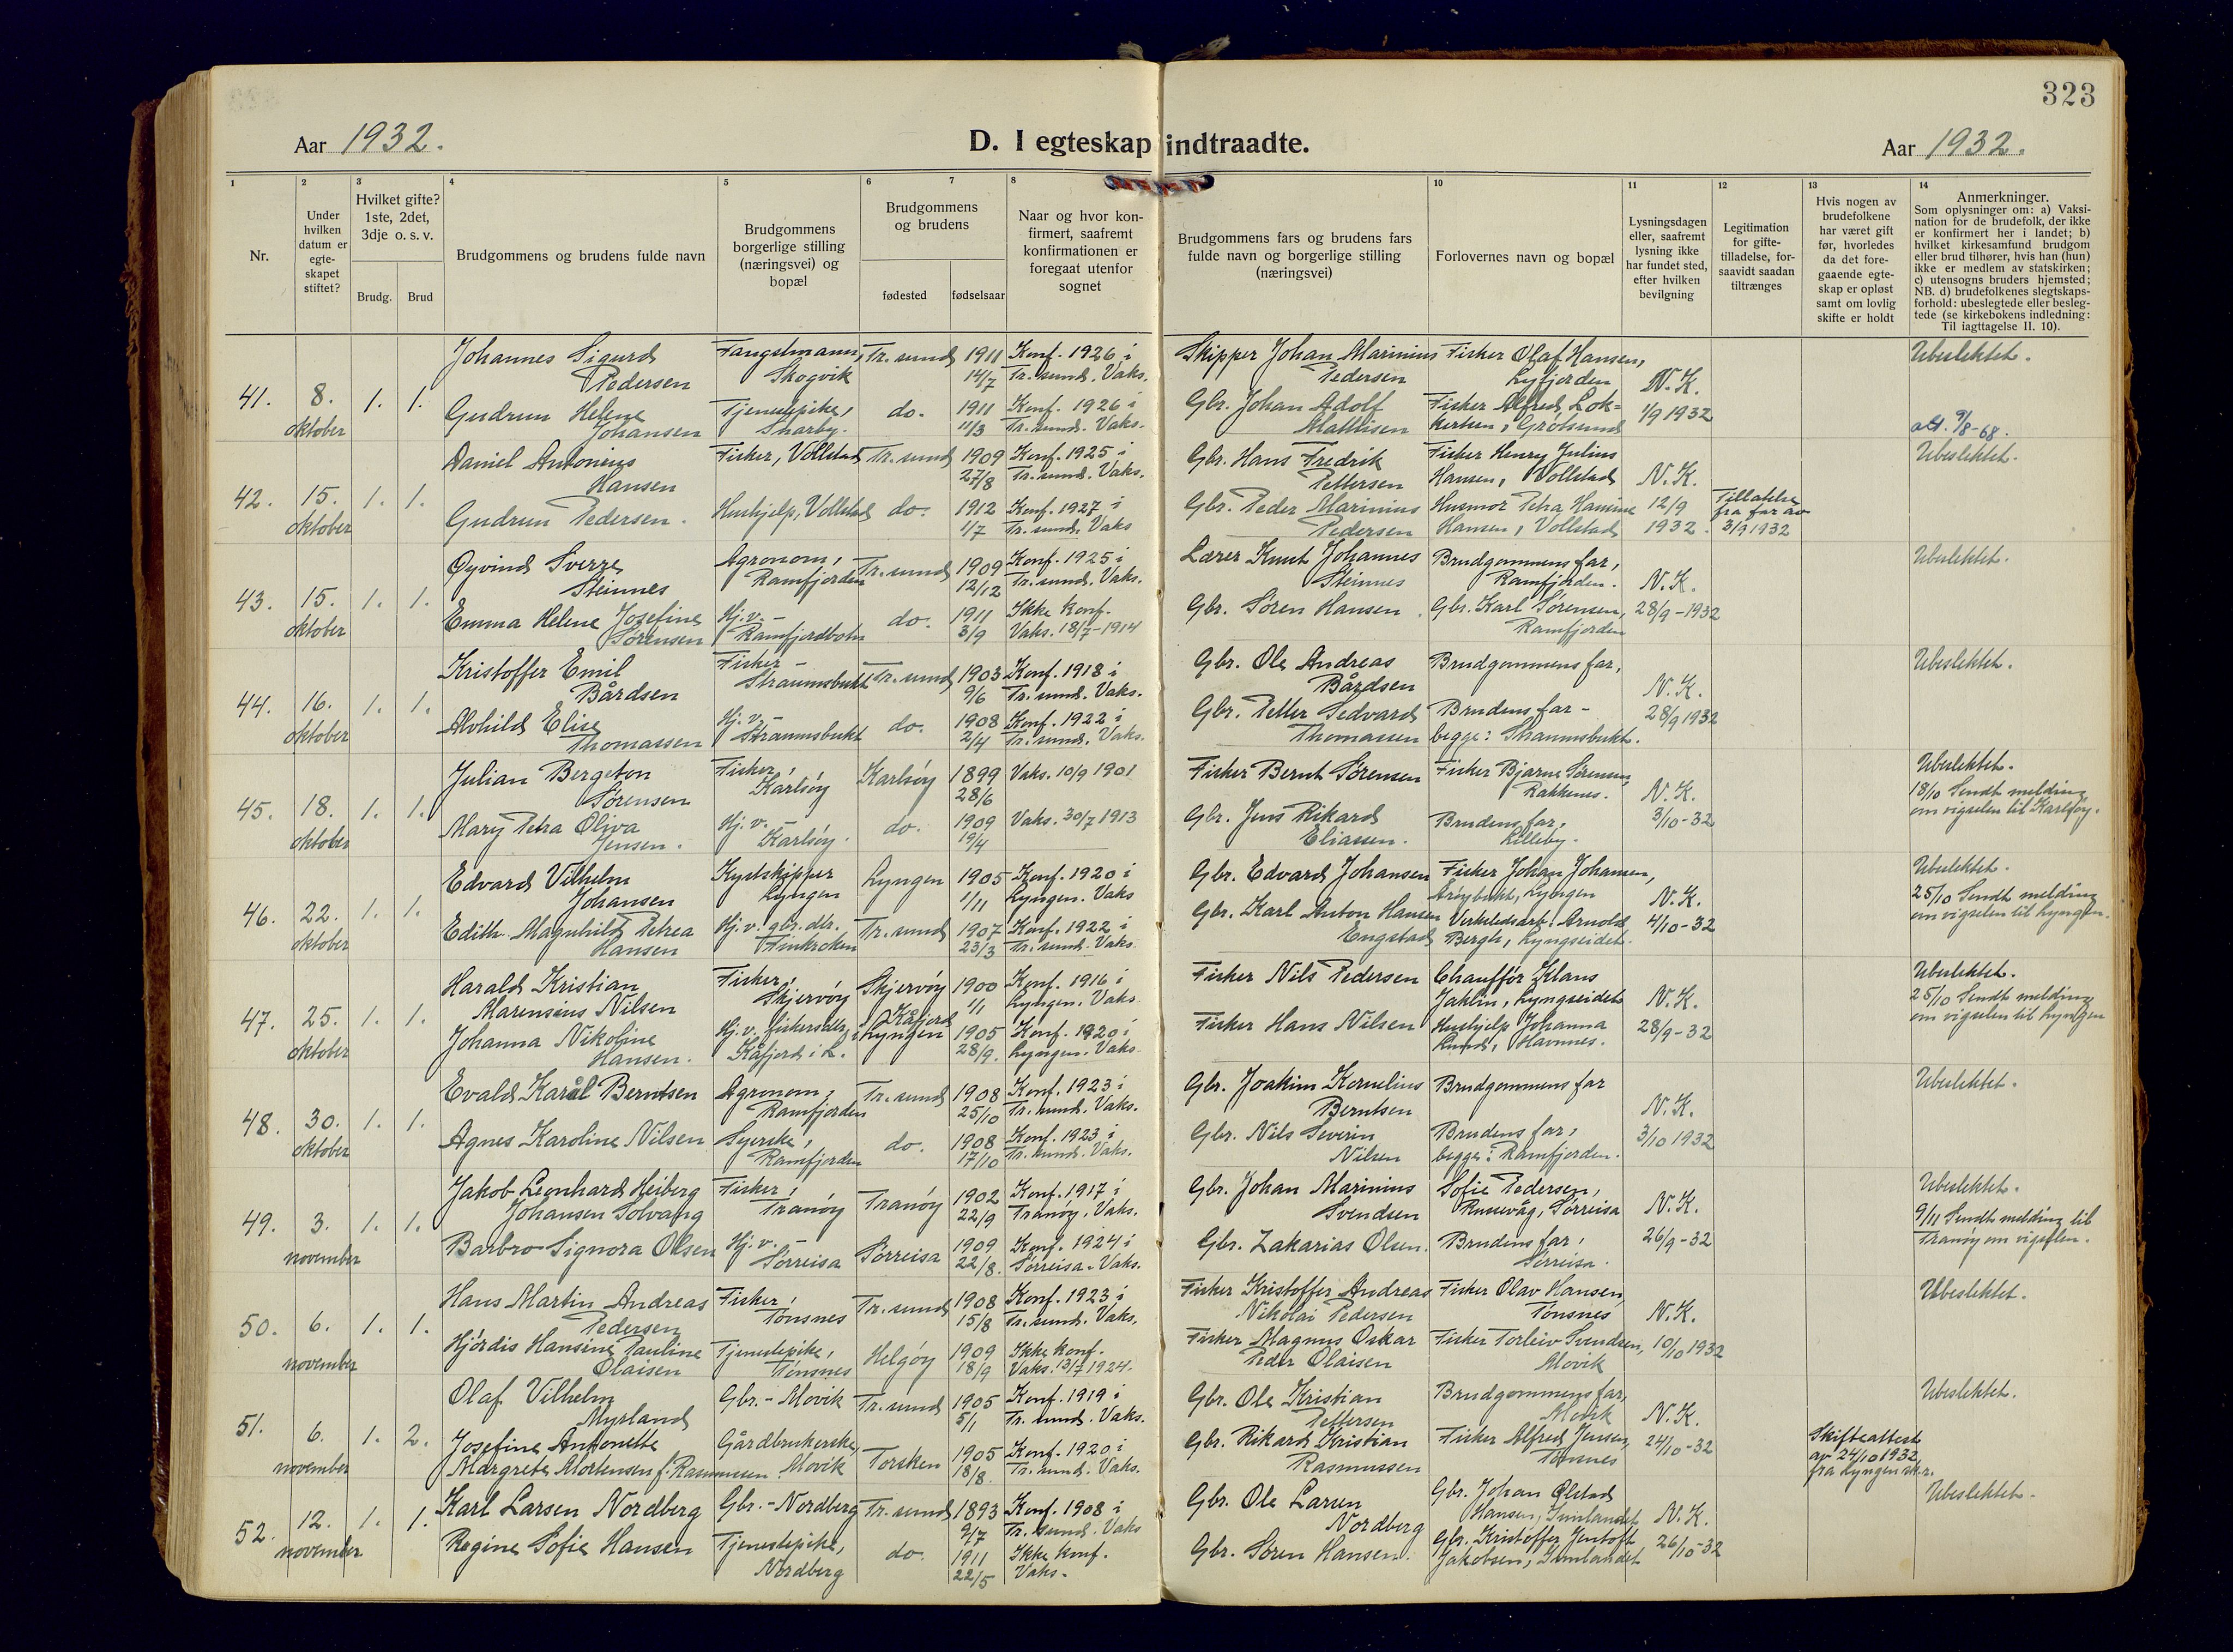 323
Aar 1932.
D. I egteskap indtraadte.
Aar 1932.
1 2 3 4 5 6 7 8 10 11 12 13 14
Nr.
Under hvilken datum er egte-skapet stiftet?
Hvilket gifte? 1ste, 2det, 3dje o. s. v.
Brudg. Brud
Brudgommens og brudens fulde navn
Brudgommens borgerlige stilling (næringsvei) og bopæl
Brudgommens og brudens
fødested fødselsaar
Naar og hvor kon-firmert, saafremt konfirmationen er foregaat utenfor sognet
Brudgommens fars og brudens fars fulde navn og borgerlige stilling (næringsvei)
Forlovernes navn og bopæl
Lysningsdagen eller, saafremt lysning ikke har fundet sted, efter hvilken bevilgning
Legitimation for gifte-tilladelse, for-saavidt saadan tiltrænges
Hvis nogen av brudefolkene har været gift før, hvorledes da det fore-gaaende egte-skap er opløst samt om lovlig skifte er holdt
Anmerkninger.
Som oplysninger om: a) Vaksi-nation for de brudefolk, der ikke er konfirmert her i landet; b) hvilket kirkesamfund brudgom eller brud tilhører, hvis han (hun) ikke er medlem av statskirken; c) utensogns bruders hjemsted; NB. d) brudefolkenes slegtskaps-forhold: ubeslegtede eller besleg-tede (se kirkebokens indledning: Til iagttagelse II. 10).
41. 8. oktober 1. 1.
Johannes Sigurd Pedersen Fangstmann, Skogvik Tr.sund 1911 14/7 Konf. 1926 i Tr.sund. Vaks. Skipper Johan Marinius Pedersen Fisker Olaf Hansen, Lyfjorden N.K. 1/9 1932 Ubeslektet.
Gudrun Helene Johansen Tjenestepike, Snarby. do. 1911 11/3 Konf. 1926 i Tr.sund. Vaks. Gbr. Johan Adolf Mathisen Fisker Alfred Lok=kertsen, Grötsund att. 9/8-68.
42. 15. oktober 1. 1.
Daniel Antonius Hansen Fisker, Vollstad Tr.sund 1909 27/8 Konf. 1925 i Tr.sund. Vaks. Gbr. Hans Fredrik Pettersen Fisker Henry Julius Hansen, Vollstad N.K. 12/9 1932. Ubeslektet.
Gudrun Pedersen. Hushjelp, Vollstad do. 1912 1/7 Konf. 1927 i Tr.sund. Vaks Gbr. Peder Marinius Pedersen Husmor Petra Hansine Hansen, Vollstad Tillatelse fra far av 3/9 1932
43. 15. oktober 1. 1.
Øyvind Sverre Steinnes Agronom, Ramfjorden Tr.sund 1909 12/12 Konf. 1925 i Tr.sund. Vaks. Lærer Knut Johannes Steinnes Brudgommens far, Ramfjorden. N.K. 28/9-1932 Ubeslektet.
Emma Helene Josefine Sørensen Hj.v.- Ramfjordbotn do. 1911 3/9 Ikke konf. Vaks. 18/7-1914 Gbr. Søren Hansen. Gbr. Karl Sørensen, Ramfjorden
44. 16. oktober 1. 1.
Kristoffer Emil Bårdsen Fisker - Straumsbukt Tr.sund 1903 9/6 Konf. 1918 i Tr.sund. Vaks. Gbr. Ole Andreas Bårdsen Brudgommens far, N.K. 28/9 1932 Ubeslektet.
Alvhild Elise Thomassen Hj.v.- Straumsbukt do. 1908 2/4 Konf. 1922 i Tr.sund. Vaks. Gbr. Petter Sedvard Thomassen Brudens far - begge: Straumsbukt.
45. 18. oktober 1. 1.
Julian Bergeton Sørensen Fisker, Karlsöy Karlsöy 1899 28/6 Vaks. 10/9 1901 Fisker Bernt Sørensen Fisker Bjarne Sørensen, Rakkenes. N.K. 3/10-32 Ubeslektet. 18/10 Sendt melding om vigselen til Karlsöy.
Mary Petra Oliva Jensen. Hj.v.- Karlsöy. do. 1909 19/4 Vaks. 30/7 1913 Gbr. Jens Rikard Eliassen. Brudens far, Lilleby.
46. 22. oktober 1. 1.
Edvard Vilhelm Johansen Kystskipper Lyngen Lyngen 1905 1/11 Konf. 1920 i Lyngen. Vaks Gbr. Edvard Johansen Fisker Johan Johansen, Aröybukt, Lyngen N.K. 4/10-32 Ubeslektet. 25/10 Sendt melding om vigselen til Lyngen.
Edith Magnhild Petrea Hansen Hj.v. gbr.dtr. Finkroken Tr.sund 1907 23/3 Konf. 1922 i Tr.sund. Vaks. Gbr. Karl Anton Hansen Engstad Arnold Bergh, Lyngseidet.
47. 25. oktober 1. 1.
Harald Kristian Marensius Nilsen Fisker, Skjervöy Skjervöy 1900 1/1 Konf. 1916 i Lyngen. Vaks. Fisker Nils Pedersen Chaufför Klaus Jaklin, Lyngseidet N.K. 28/9-32 Ubeslektet. 25/10 Sendt melding om vigselen til Lyngen
Johanna Nikoline Hansen. Hj.v. fiskersdtr, Kåfjord i L. Kåfjord i Lyngen 1905 28/9. Konf. 1920 i Lyngen. Vaks. Fisker Hans Nilsen Hushjelp Johanna Lund, Havnnes.
48. 30. oktober 1. 1.
Evald Karål Berntsen Agronom, Ramfjorden Tr.sund 1908 25/10 Konf. 1923 i Tr.sund. Vaks. Gbr. Joakim Kornelius Berntsen Brudgommens far N.K. 3/10 1932 Ubeslektet.
Agnes Karoline Nilsen Syerske, Ramfjorden do. 1908 17/10 Konf. 1923 i Tr.sund. Vaks. Gbr. Nils Severin Nilsen Brudens far, begge: Ramfjorden.
49. 3. november 1. 1.
Jakob Leonhard Heiberg Johansen Solvang Fisker, Tranöy Tranöy 1902 22/9 Konf. 1917 i Tranöy. Vaks. Gbr. Johan Marinius Svendsen Sofie Pedersen, Russevåg, Sörreisa N.K. 26/9-32 Ubeslektet. 9/11 Sendt melding til Tranöy om vigselen.
Barbro Signora Olsen Hj.v.- Sörreisa Sörreisa 1909 22/8. Konf. 1924 i Sörreisa. Vaks. Gbr. Zakarias Olsen. Brudens far, Sörreisa.
50. 6. november 1. 1.
Hans Martin Andreas Pedersen Fisker, Tönsnes Tr.sund 1908 15/8 Konf. 1923 i Tr.sund. Vaks. Fisker Kristoffer Andreas Nikolai Pedersen Fisker Olav Hansen, Tönsnes N.K. 10/10 1932 Ubeslektet.
Hjördis Hansine Pauline Olaisen Tjenestepike, Tönsnes Helgöy 1909 18/9 Ikke konf. Vaks. 13/7 1924. Fisker Magnus Oskar Peder Olaisen Fisker Torleiv Svendsen, Movik
51. 6. november 1. 2.
Olaf Vilhelm Myrland Gbr. - Movik Tr.sund 1905 5/1 Konf. 1919 i Tr.sund. Vaks. Gbr. Ole Kristian Pettersen Brudgommens far, Movik N.K. 24/10-32 Ubeslektet.
Josefine Antonette Margrete Mortensen f. Rasmussen Gårdbrukerske, Movik Torsken 1905 18/8. Konf. 1920 i Tr.sund. Vaks. Gbr. Rikard Kristian Rasmussen Fisker Alfred Jensen, Tönsnes Skifteattest av 24/10 1932 fra Lyngen sk.r.
52. 12. november 1. 1.
Karl Larsen Nordberg Gbr. - Nordberg Tr.sund 1893 9/7 Konf. 1908 i Tr.sund. Vaks Gbr. Ole Larsen Nordberg Gbr. Johan Olstad Hansen, N.K. 26/10-32 Ubeslektet.
Regine Sofie Hansen Tjenestepike, Nordberg do. 1911 22/5 Ikke konf. Vaks. Gbr. Sören Hansen. Gbr. Kristoffer Jentoft Jakobsen,